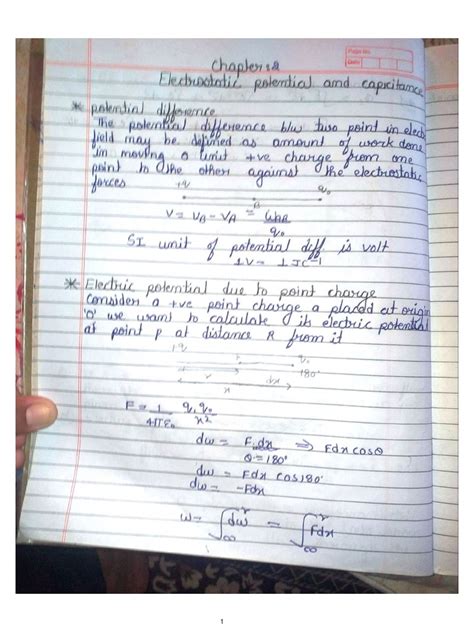 Page No.
Date
Chapter:2
Electrostatic potential and capcitance
* potential difference
The potential difference b/w two point in elect
field may be defined as amount of work done
in moving a unit +ve charge from one
point to the other against the electrostatic
forces
+q q₀
B
V = V_B - V_A = W_AB / q₀
SI unit of potential diff is volt
1V = 1JC⁻¹
* Electric potential due to point charge
Consider a +ve point charge a placed at origin
'O' we want to calculate its electric potential
at point P at distance R from it
+q
P q₀
r dx 180°
x
F = 1/4πε₀ q, q₀/x²
dw = F.dx ⇒ Fdx cosθ
θ = 180°
dw = Fdx cos180°
dw = -Fdx
w = ∫_∞^r dw = ∫_∞^r Fdx
1